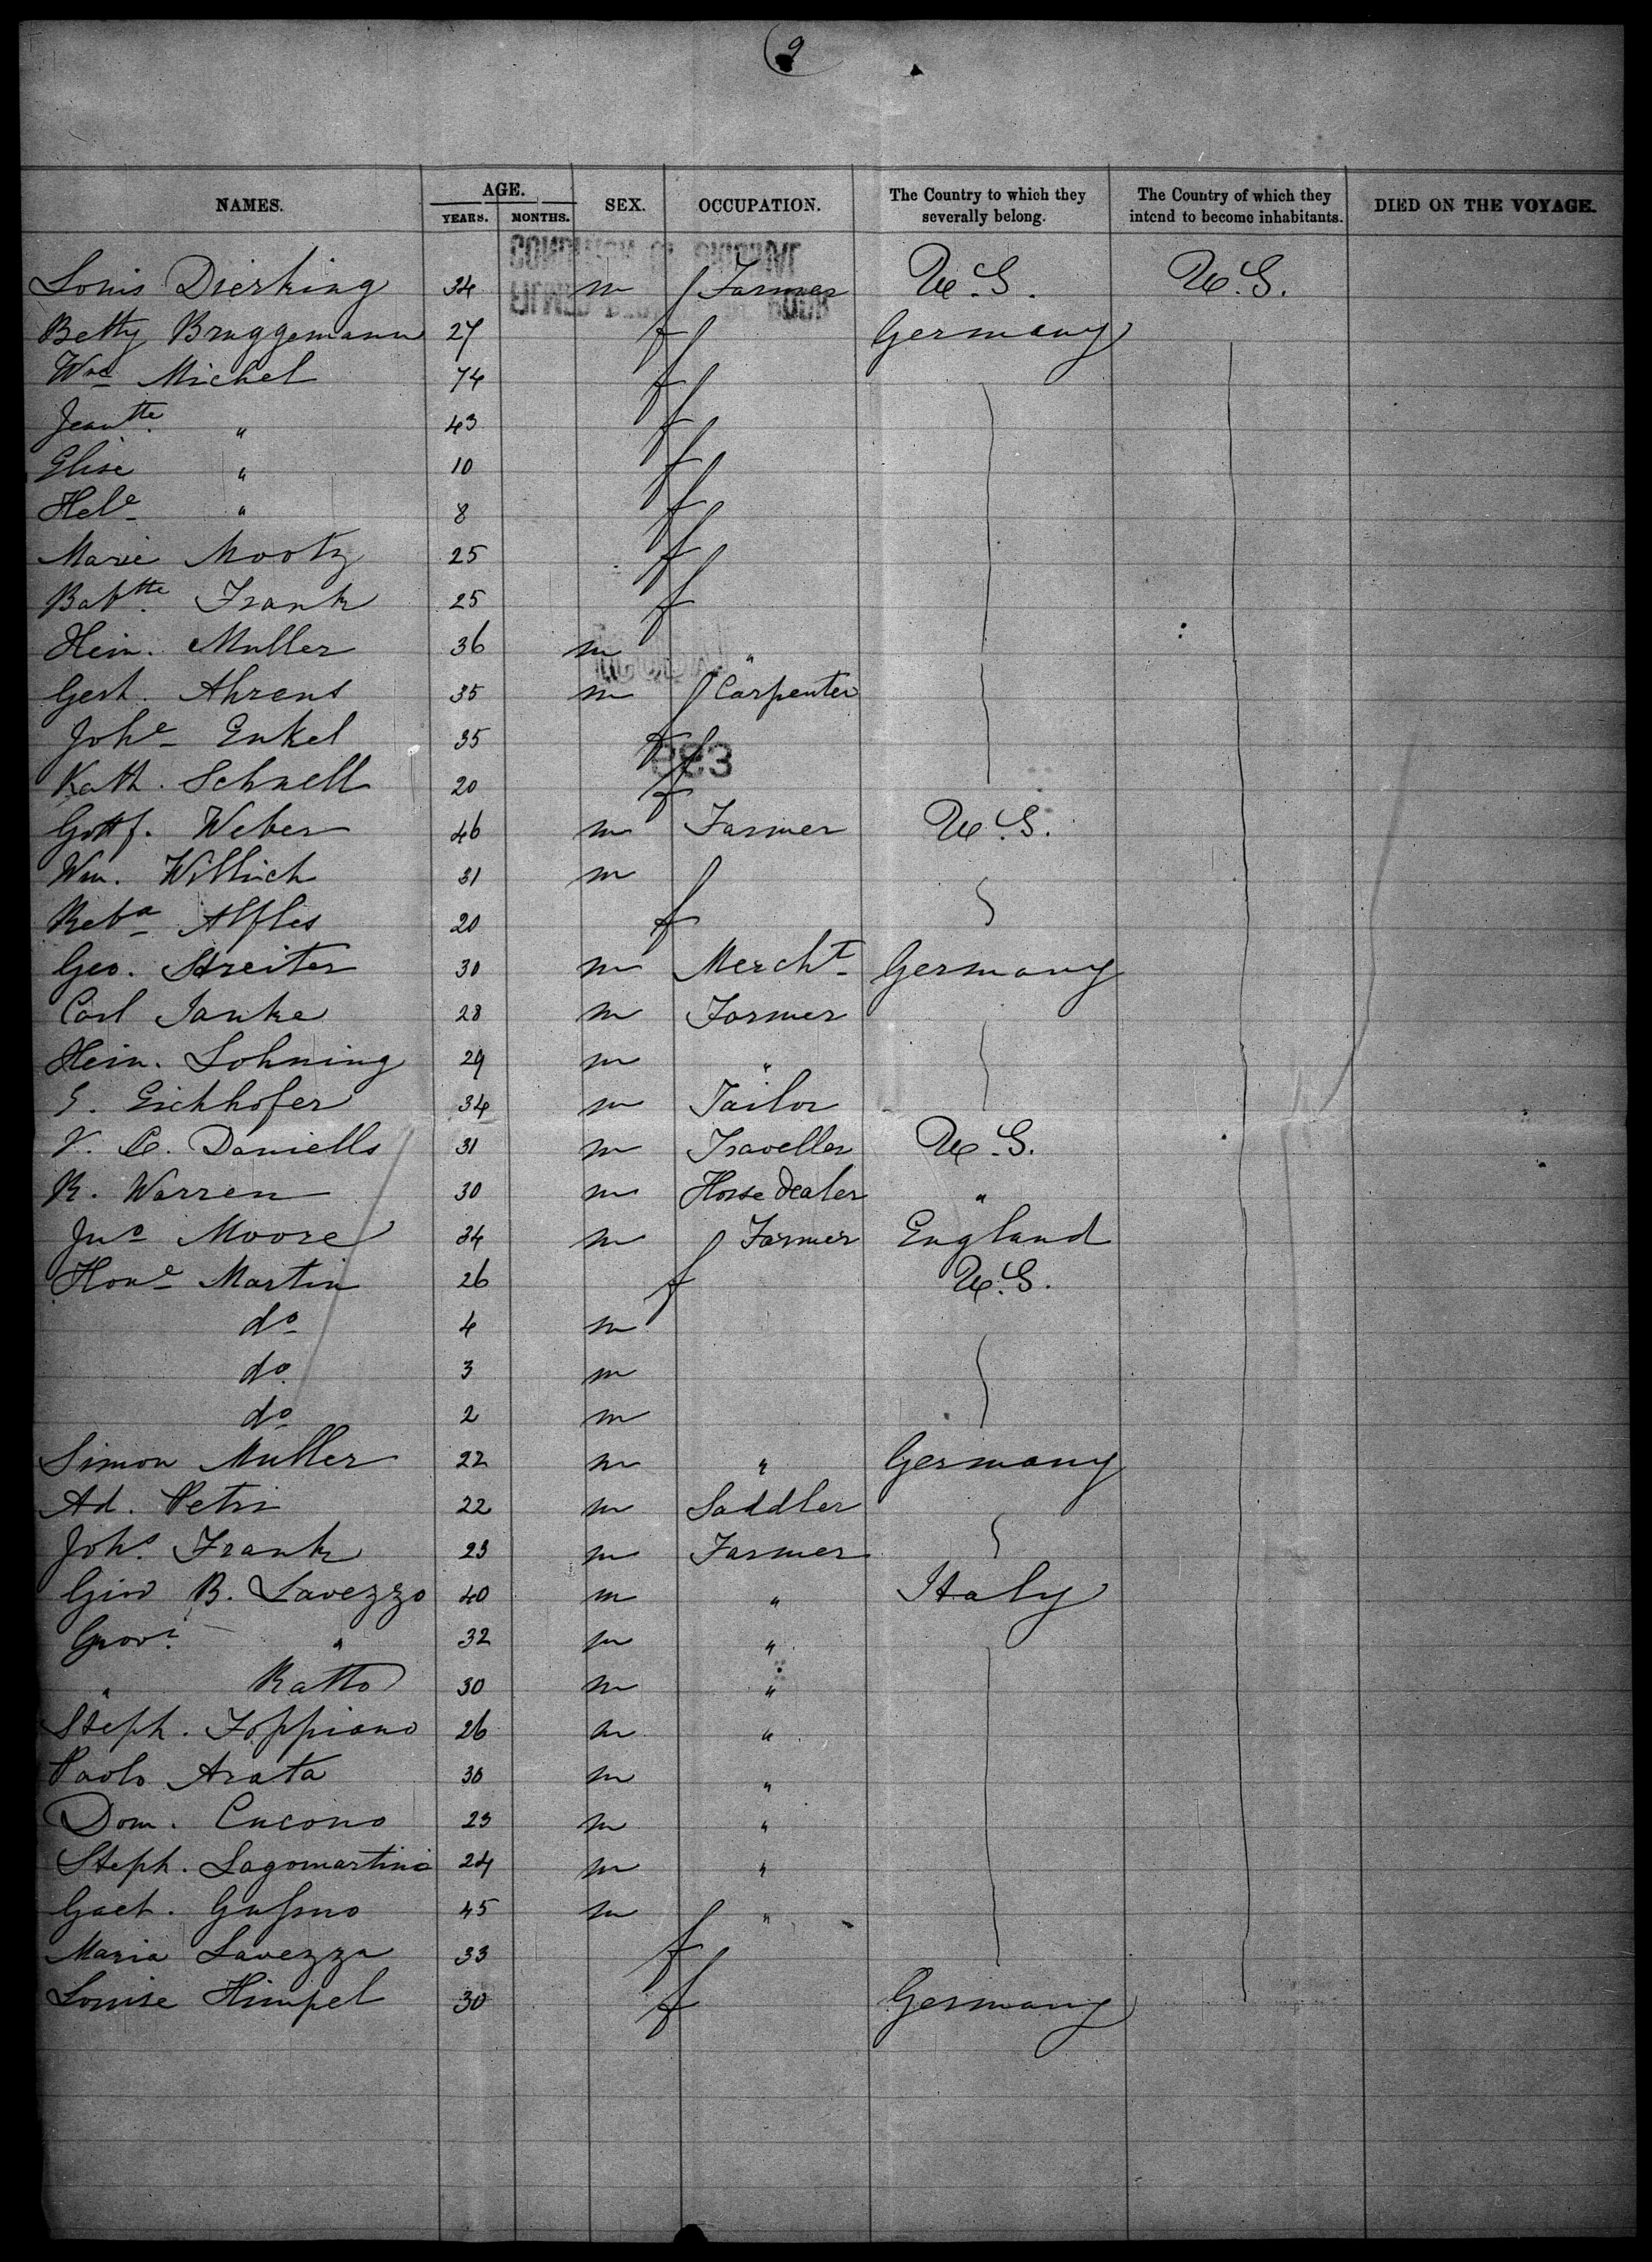 9
NAMES. AGE. YEARS. MONTHS. SEX. OCCUPATION. The Country to which they severally belong. The Country of which they intend to become inhabitants. DIED ON THE VOYAGE.
Louis Dierking 34 m Farmer U.S. U.S.
Betty Bruggemann 27 f Germany
Wne Michel 74 f
Jeantte. " 43 f
Elise " 10 f
Hele " 8 f
Marie Mootz 25 f
Babtte. Frank 25 f
Hein. Muller 36 m "
Gerh. Ahrens 35 m Carpenter
Johe Enkel 35 f
Kath. Schnell 20 f
883
Gottf. Weber 46 m Farmer U.S.
Wm. Willich 31 m
Reba Alfles 20 f
Geo. Streiter 30 m Mercht Germany
Carl Janke 28 m Farmer
Hein. Lohning 29 m "
E. Eichhofer 34 m Tailor
V. C. Daniells 31 m Traveller U.S.
R. Warren 30 m Horse dealer "
Jno Moore 34 m Farmer England
Hone Martin 26 f U.S.
do 4 m
do 3 m
do 2 m
Simon Muller 22 m " Germany
Ad. Petri 22 m Saddler
Johs. Frank 23 m Farmer
Giov B. Lavezzo 40 m " Italy
Giovi. " 32 m "
" Ratto 30 m "
Steph. Foppiano 26 m "
Paolo Arata 30 m "
Dom. Cucono 23 m "
Steph. Lagomartino 24 m "
Gaet. 45 m "
Maria Lavezza 33 f
Louise Himpel 30 f Germany